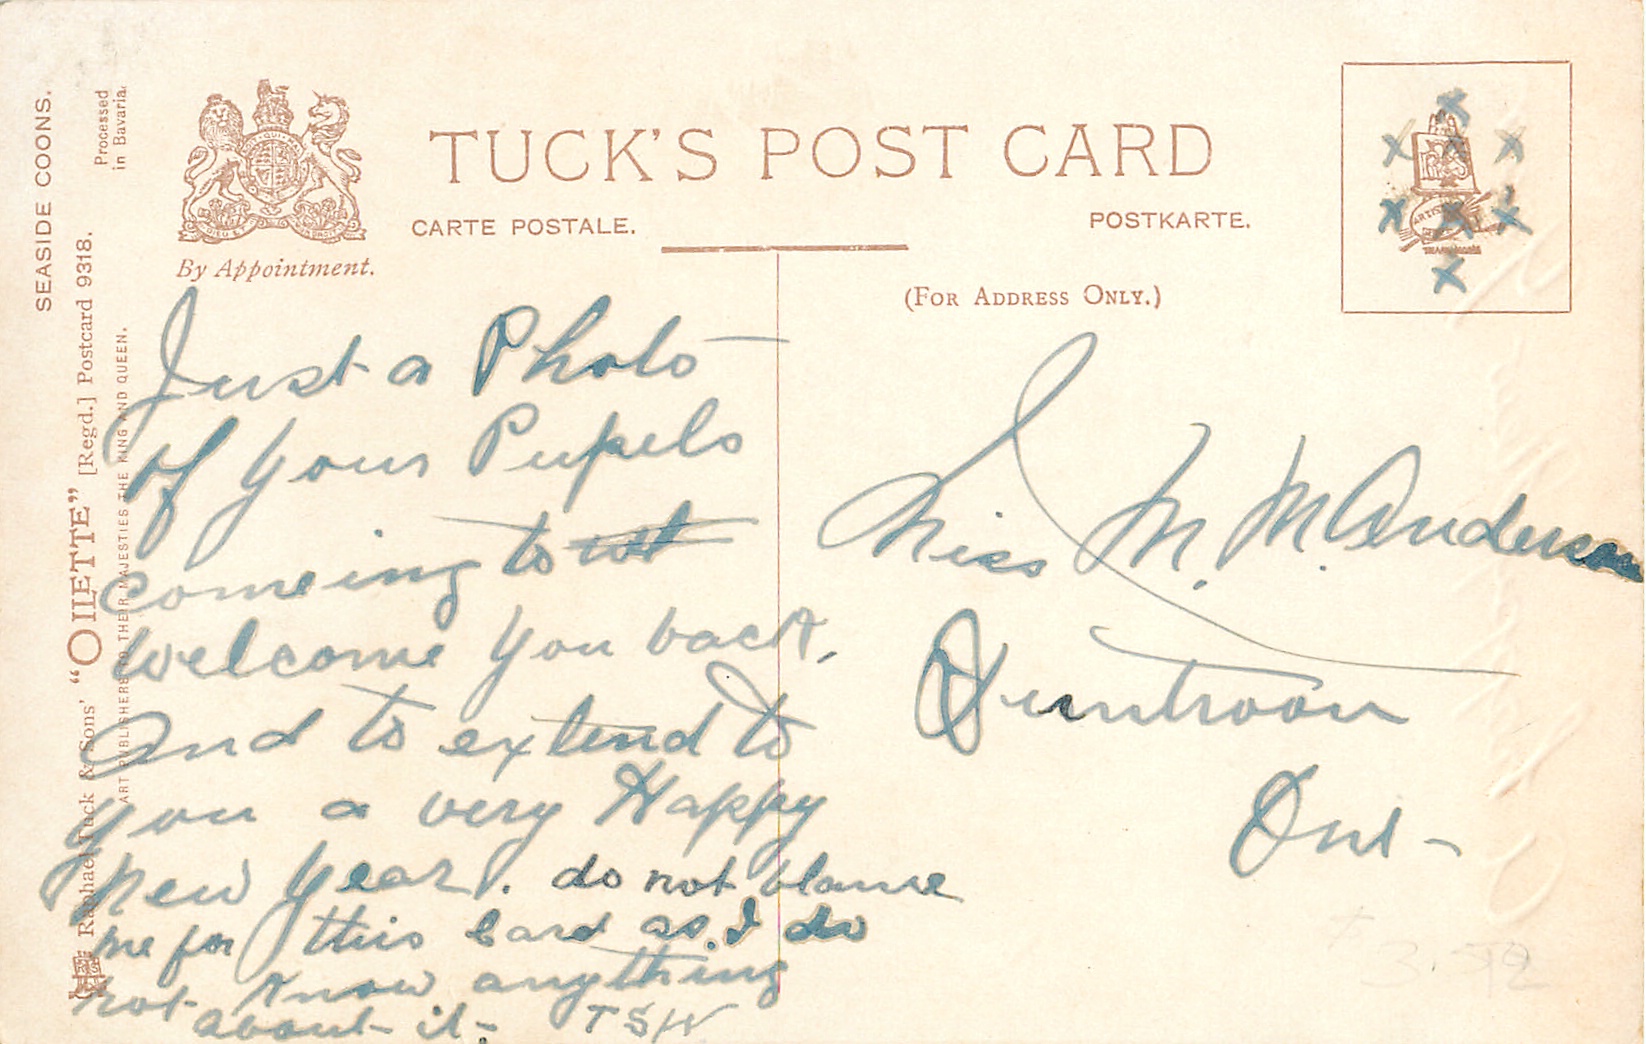 SEASIDE COONS.
Processed
in Bavaria.
TUCK'S POST CARD
CARTE POSTALE.
POSTKARTE.
By Appointment.
(FOR ADDRESS ONLY.)
Raphael Tuck & Sons' "OILETTE" [Regd.] Postcard 9318.
ART PUBLISHERS TO THEIR MAJESTIES THE KING AND QUEEN.
Just a Photo
of your Pupels
comeing to
welcome you back,
and to extend to
you a very Happy
new year. do not blame
me for this Card as I do
not know anything
about it- TSW
Miss M. M. Anderson
Duntroon
Ont-
X
X X X
X X X
X
3.